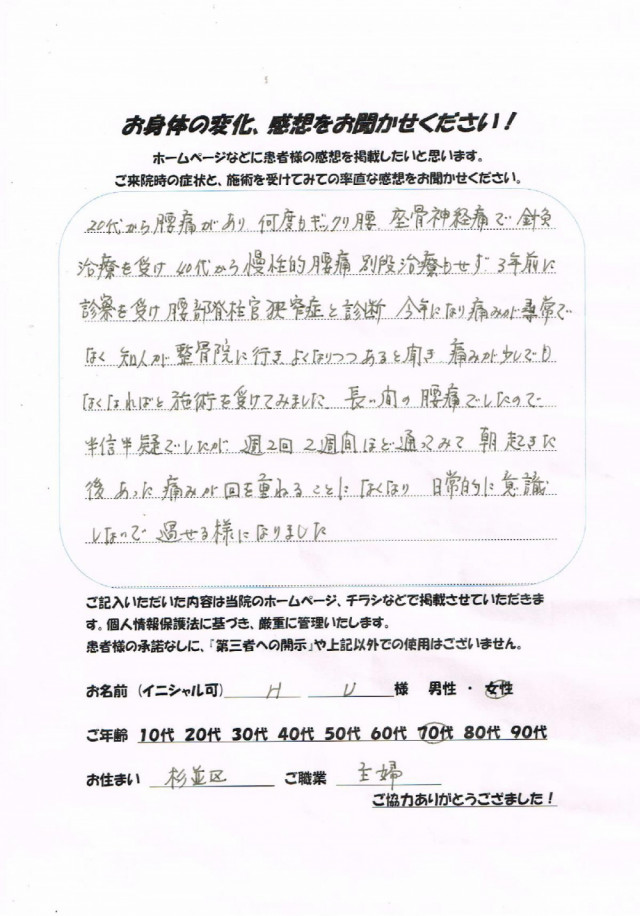 お身体の変化、感想をお聞かせください！
ホームページなどに患者様の感想を掲載したいと思います。
ご来院時の症状と、施術を受けてみての率直な感想をお聞かせください。
20代から腰痛があり 何度もギックリ腰 座骨神経痛で 針灸
治療を受け 40代から慢性的腰痛 別段治療もせず 3年前に
診察を受け 腰部脊柱官狭窄症と診断 今年になり痛みが尋常で
なく 知人が整骨院に行き よくなりつつあると聞き 痛みが少しでも
なくなればと施術を受けてみました 長い間の腰痛でしたので
半信半疑でしたが 週2回 2週間ほど通ってみて 朝起きた
後 あった痛みが回を重ねることになくなり 日常的に意識
しないで 過せる様になりました
ご記入いただいた内容は当院のホームページ、チラシなどで掲載させていただきま
す。個人情報保護法に基づき、厳重に管理いたします。
患者様の承諾なしに、「第三者への開示」や上記以外での使用はございません。
お名前（イニシャル可） H U 様 男性 ・ 女性
ご年齢 10代 20代 30代 40代 50代 60代 70代 80代 90代
お住まい 杉並区 ご職業 主婦
ご協力ありがとうござました！